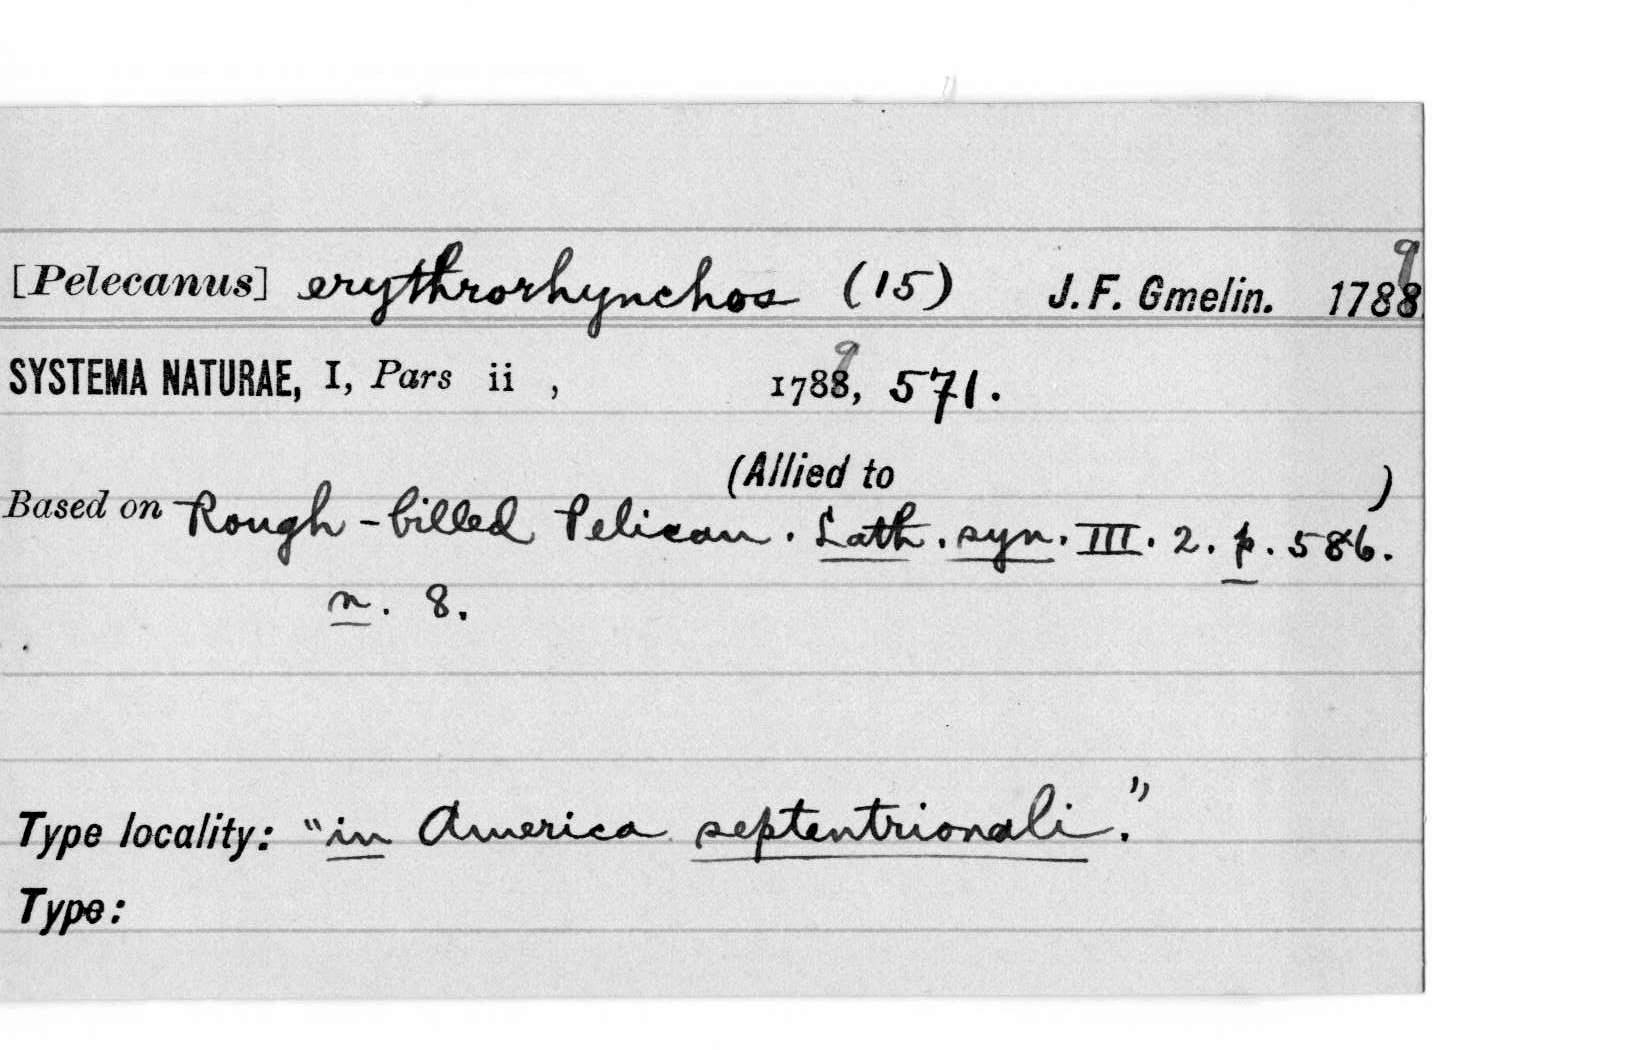 [Pelecanus] erythrorhynchos (15) J. F. Gmelin. 1788 9
SYSTEMA NATURAE, I, Pars ii , 1788 9, 571.
(Allied to )
Based on Rough-billed Pelican. Lath. syn. III. 2. p. 586.
n. 8.
Type locality: "in America septentrionali."
Type: